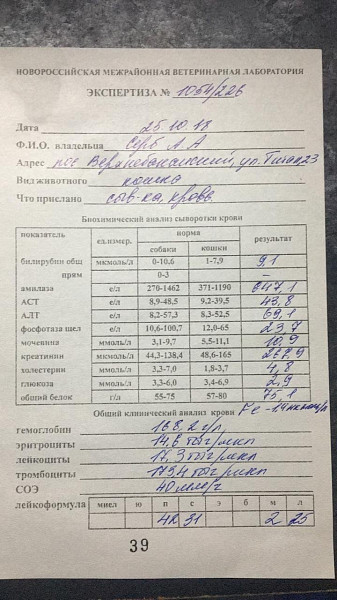 НОВОРОССИЙСКАЯ МЕЖРАЙОННАЯ ВЕТЕРИНАРНАЯ ЛАБОРАТОРИЯ
ЭКСПЕРТИЗА № 1054/226
Дата 25.10.18
Ф.И.О. владельца Серб А А
Адрес пос Верхнебаканский, ул. Титан,23
Вид животного кошка
Что прислано сыв-ка, кровь
Биохимический анализ сыворотки крови
показатель ед.измер. норма результат
собаки кошки
билирубин общ мкмоль/л 0-10,6 1-7,9 9,1
прям 0-3 –
амилаза е/л 270-1462 371-1190 847,1
АСТ е/л 8,9-48,5 9,2-39,5 43,8
АЛТ е/л 8,2-57,3 8,3-52,5 69,1
фосфотаза щел е/л 10,6-100,7 12,0-65 23,7
мочевина ммоль/л 3,1-9,7 5,5-11,1 10,9
креатинин мкмоль/л 44,3-138,4 48,6-165 262,9
холестерин ммоль/л 3,3-7,0 1,8-3,7 4,8
глюкоза ммоль/л 3,3-6,0 3,4-6,9 2,9
общий белок г/л 55-75 57-80 75,1
Общий клинический анализ крови Fe -
гемоглобин 168,2 г/л
эритроциты 14,6 тыс/мкл
лейкоциты 17,3 тыс/мкл
тромбоциты 1794 тыс/мкл
СОЭ 40 мм/ч
лейкоформула миел ю п с э б м л
42 31 2 25
39